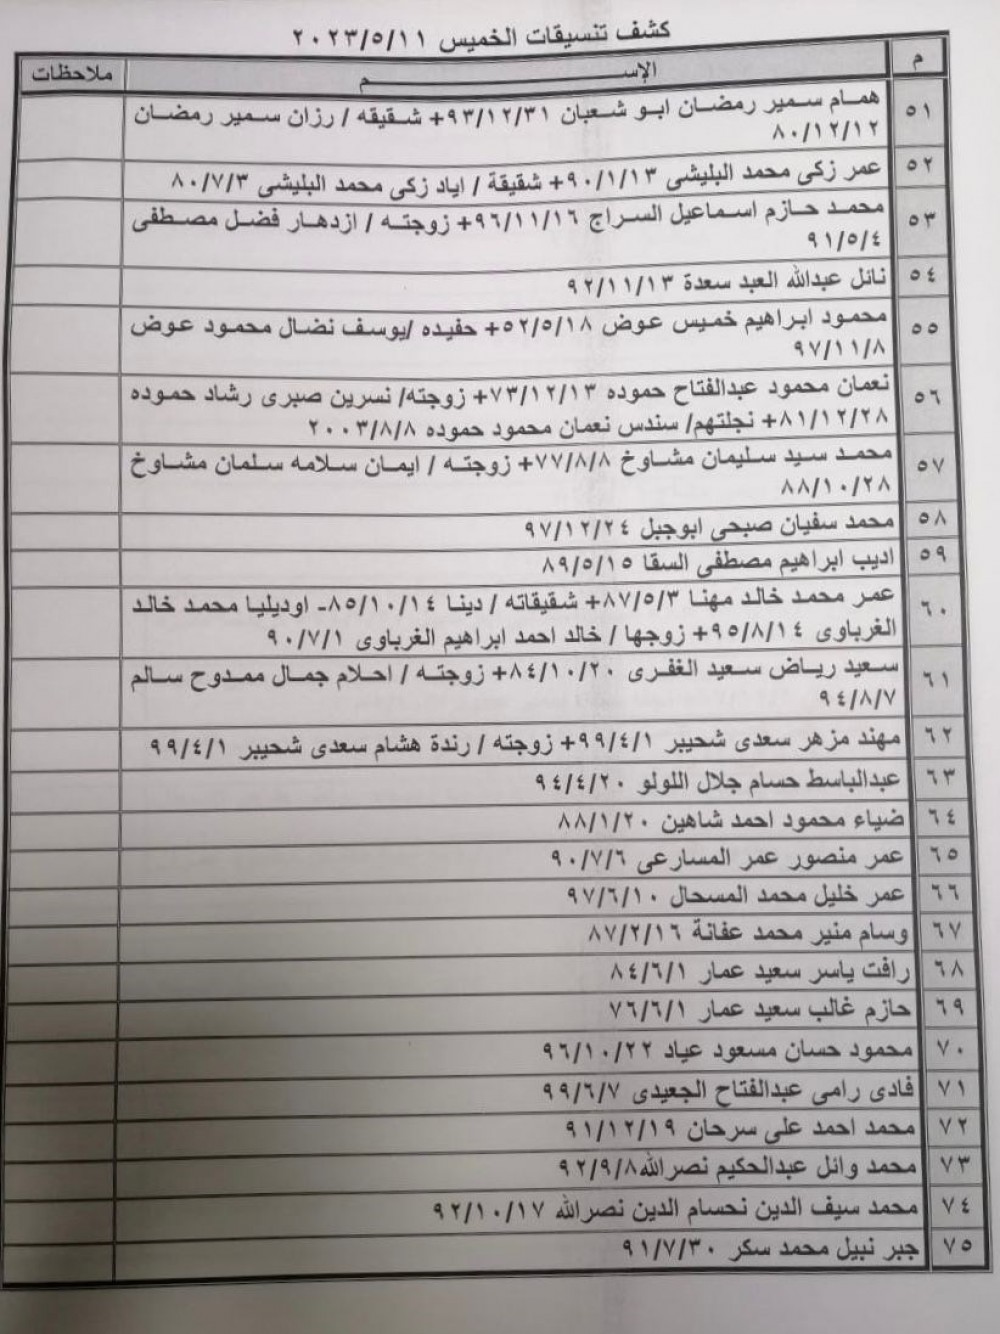 كشف تنسيقات الخميس ٢٠٢٣/٥/١١
م الإســـم ملاحظات
٥١ همام سمير رمضان ابو شعبان ٩٣/١٢/٣١+ شقيقه / رزان سمير رمضان
٨٠/١٢/١٢
٥٢ عمر زكى محمد البليشى ٩٠/١/١٣+ شقيقة / اياد زكى محمد البليشى ٨٠/٧/٣
٥٣ محمد حازم اسماعيل السراج ٩٦/١١/١٦+ زوجته / ازدهار فضل مصطفى
٩١/٥/٤
٥٤ نائل عبدالله العبد سعدة ٩٢/١١/١٣
٥٥ محمود ابراهيم خميس عوض ٥٢/٥/١٨+ حفيده /يوسف نضال محمود عوض
٩٧/١١/٨
٥٦ نعمان محمود عبدالفتاح حموده ٧٣/١٢/١٣+ زوجته/ نسرين صبرى رشاد حموده
٨١/١٢/٢٨+ نجلتهم/ سندس نعمان محمود حموده ٢٠٠٣/٨/٨
٥٧ محمد سيد سليمان مشاوخ ٧٧/٨/٨+ زوجته / ايمان سلامه سلمان مشاوخ
٨٨/١٠/٢٨
٥٨ محمد سفيان صبحى ابوجبل ٩٧/١٢/٢٤
٥٩ اديب ابراهيم مصطفى السقا ٨٩/٥/١٥
٦٠ عمر محمد خالد مهنا ٨٧/٥/٣+ شقيقاته / دينا ٨٥/١٠/١٤- اوديليا محمد خالد
الغرباوى ٩٥/٨/١٤+ زوجها / خالد احمد ابراهيم الغرباوى ٩٠/٧/١
٦١ سعيد رياض سعيد الغفرى ٨٤/١٠/٢٠+ زوجته / احلام جمال ممدوح سالم
٩٤/٨/٧
٦٢ مهند مزهر سعدى شحيبر ٩٩/٤/١+ زوجته / رندة هشام سعدى شحيبر ٩٩/٤/١
٦٣ عبدالباسط حسام جلال اللولو ٩٤/٤/٢٠
٦٤ ضياء محمود احمد شاهين ٨٨/١/٢٠
٦٥ عمر منصور عمر المسارعى ٩٠/٧/٦
٦٦ عمر خليل محمد المسحال ٩٧/٦/١٠
٦٧ وسام منير محمد عفانة ٨٧/٢/١٦
٦٨ رافت ياسر سعيد عمار ٨٤/٦/١
٦٩ حازم غالب سعيد عمار ٧٦/٦/١
٧٠ محمود حسان مسعود عياد ٩٦/١٠/٢٢
٧١ فادى رامى عبدالفتاح الجعيدى ٩٩/٦/٧
٧٢ محمد احمد على سرحان ٩١/١٢/١٩
٧٣ محمد وائل عبدالحكيم نصرالله٩٢/٩/٨
٧٤ محمد سيف الدين نحسام الدين نصرالله ٩٢/١٠/١٧
٧٥ جبر نبيل محمد سكر ٩١/٧/٣٠